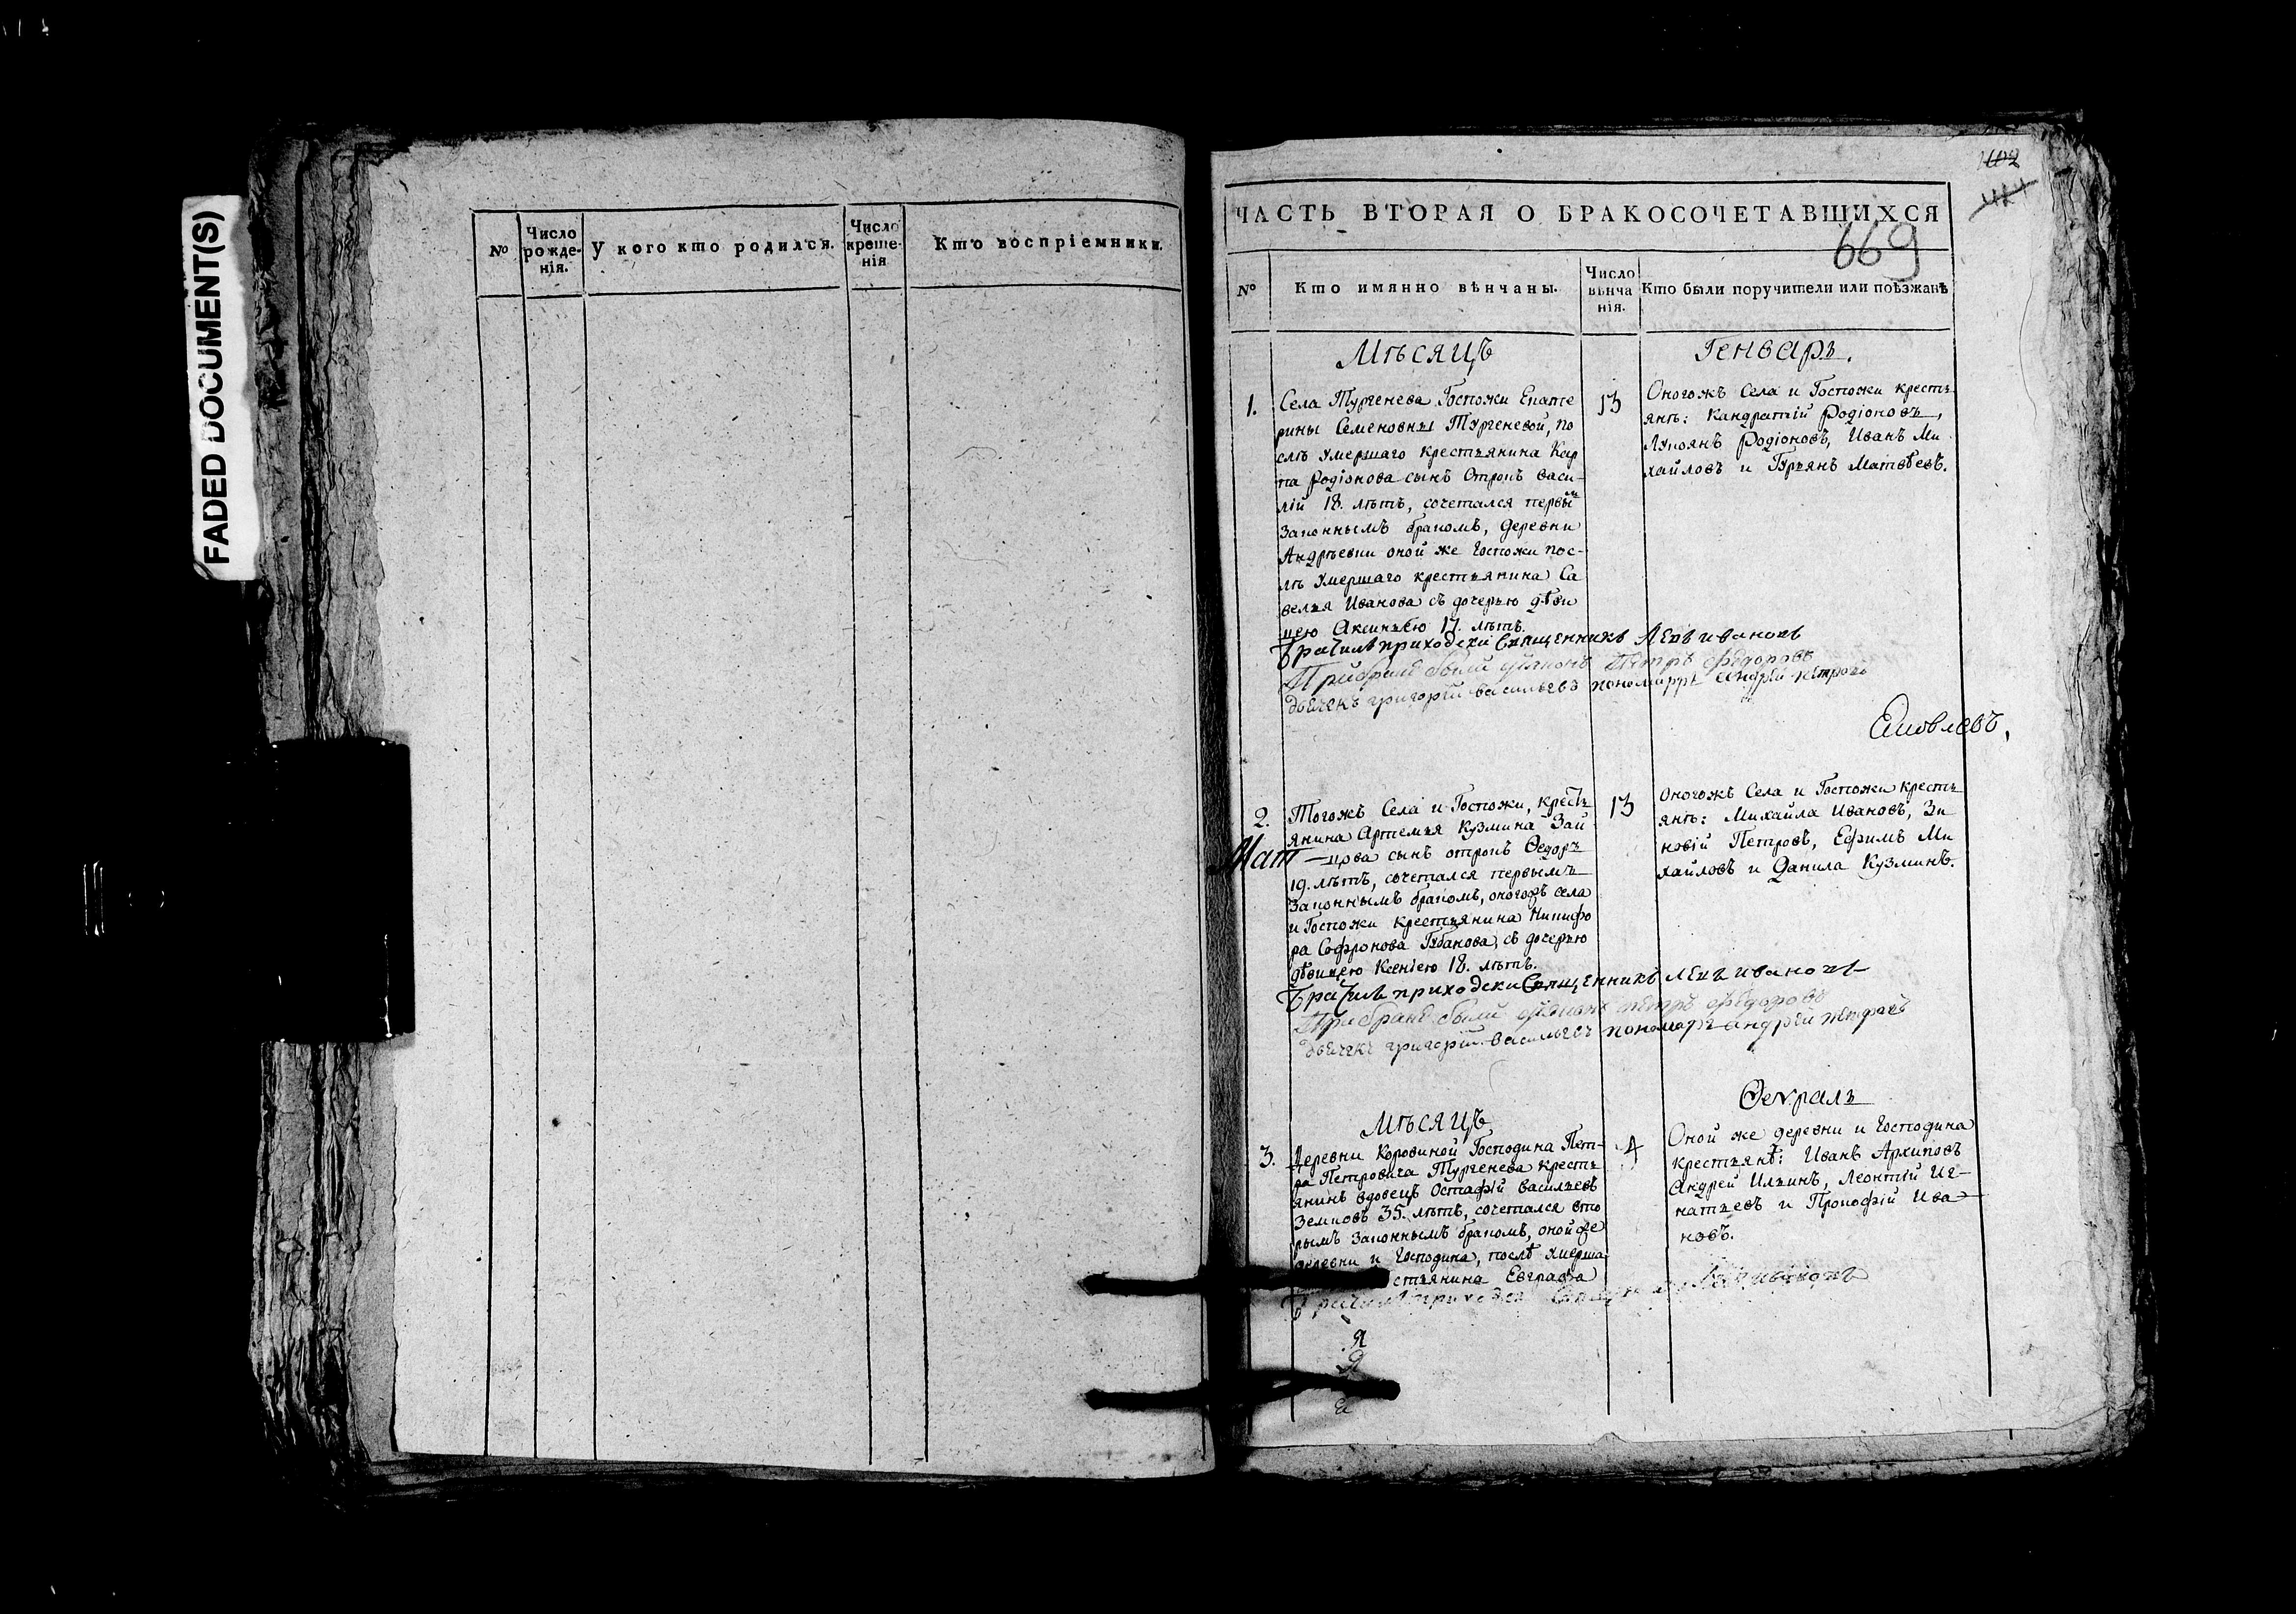 FADED DOCUMENT(S)
№
Число рожде-нія.
У кого кто родился.
Число креще-нія
Кто воспріемники.
402
ЧАСТЬ ВТОРАЯ О БРАКОСОЧЕТАВШИХСЯ
669
№
Кто имянно вѣнчаны.
Число вѣнча нія.
Кто были поручители или поѣзжанѣ
Мѣсяцъ
Генварь.
1.
Села Тургенева Госпожи Екате
рины Семеновны Тургеневой, по
слѣ умершаго крестьянина Кар
па Родіонова сынъ отрокъ Васи-
лій 18. лѣтъ, сочетался первым
законнымъ бракомъ, деревни
Андрѣевки оной же Госпожи пос-
лѣ умершаго крестьянина Са
велья Иванова съ дочерью дѣви
цею Аксиньею 17. лѣтъ.
13
Оногожъ Села и Госпожи кресть
янѣ: Кандратій Родіоновъ,
Лукоянъ Родіоновъ, Иванъ Ми
хайловъ и Гурьянъ Матвѣевъ.
Брачилъ приходски Священникъ Левъ Ивановъ
При браке были диаконъ Петръ Федоровъ
дьячекъ Григорій Васильевъ пономарь Андрій Петровъ
Яковлевъ.
2.
Мат
Тогожъ Села и Госпожи, кресть
янина Артемья Кузмина Зай
цова сынъ отрокъ Ѳедоръ
19. лѣтъ, сочетался первымъ
законнымъ бракомъ, оногожъ села
и Госпожи крестьянина Никифо
ра Софронова Губанова, съ дочерью
дѣвицею Ксеніею 18. лѣтъ.
13
Оногожъ Села и Госпожи кресть
янѣ: Михайла Ивановъ, Зи
новій Петровъ, Ефимъ Ми
хайловъ и Данила Кузминъ.
Брачилъ приходски Священникъ Левъ Ивановъ
При браке были диаконъ Петръ Федоровъ
дьячекъ Григорій Васильевъ пономарь Андрей Петровъ
Мѣсяцъ
Февраль
3.
Деревни Коровиной Господина Пет-
ра Петровича Тургенева кресть
янинъ вдовецъ Остафій Васильевъ
Земковъ 35. лѣтъ, сочетался вто
рымъ законнымъ бракомъ, оной же
деревни и Господина, послѣ умерша
стьянина Евграфа
4
Оной же деревни и Господина
крестьянѣ: Иванъ Архиповъ
Андрей Ильинъ, Леонтій Иг-
натьевъ и Прокофій Ива
новъ.
Брачилъ приходски Священникъ Левъ Ивановъ
Я
Я